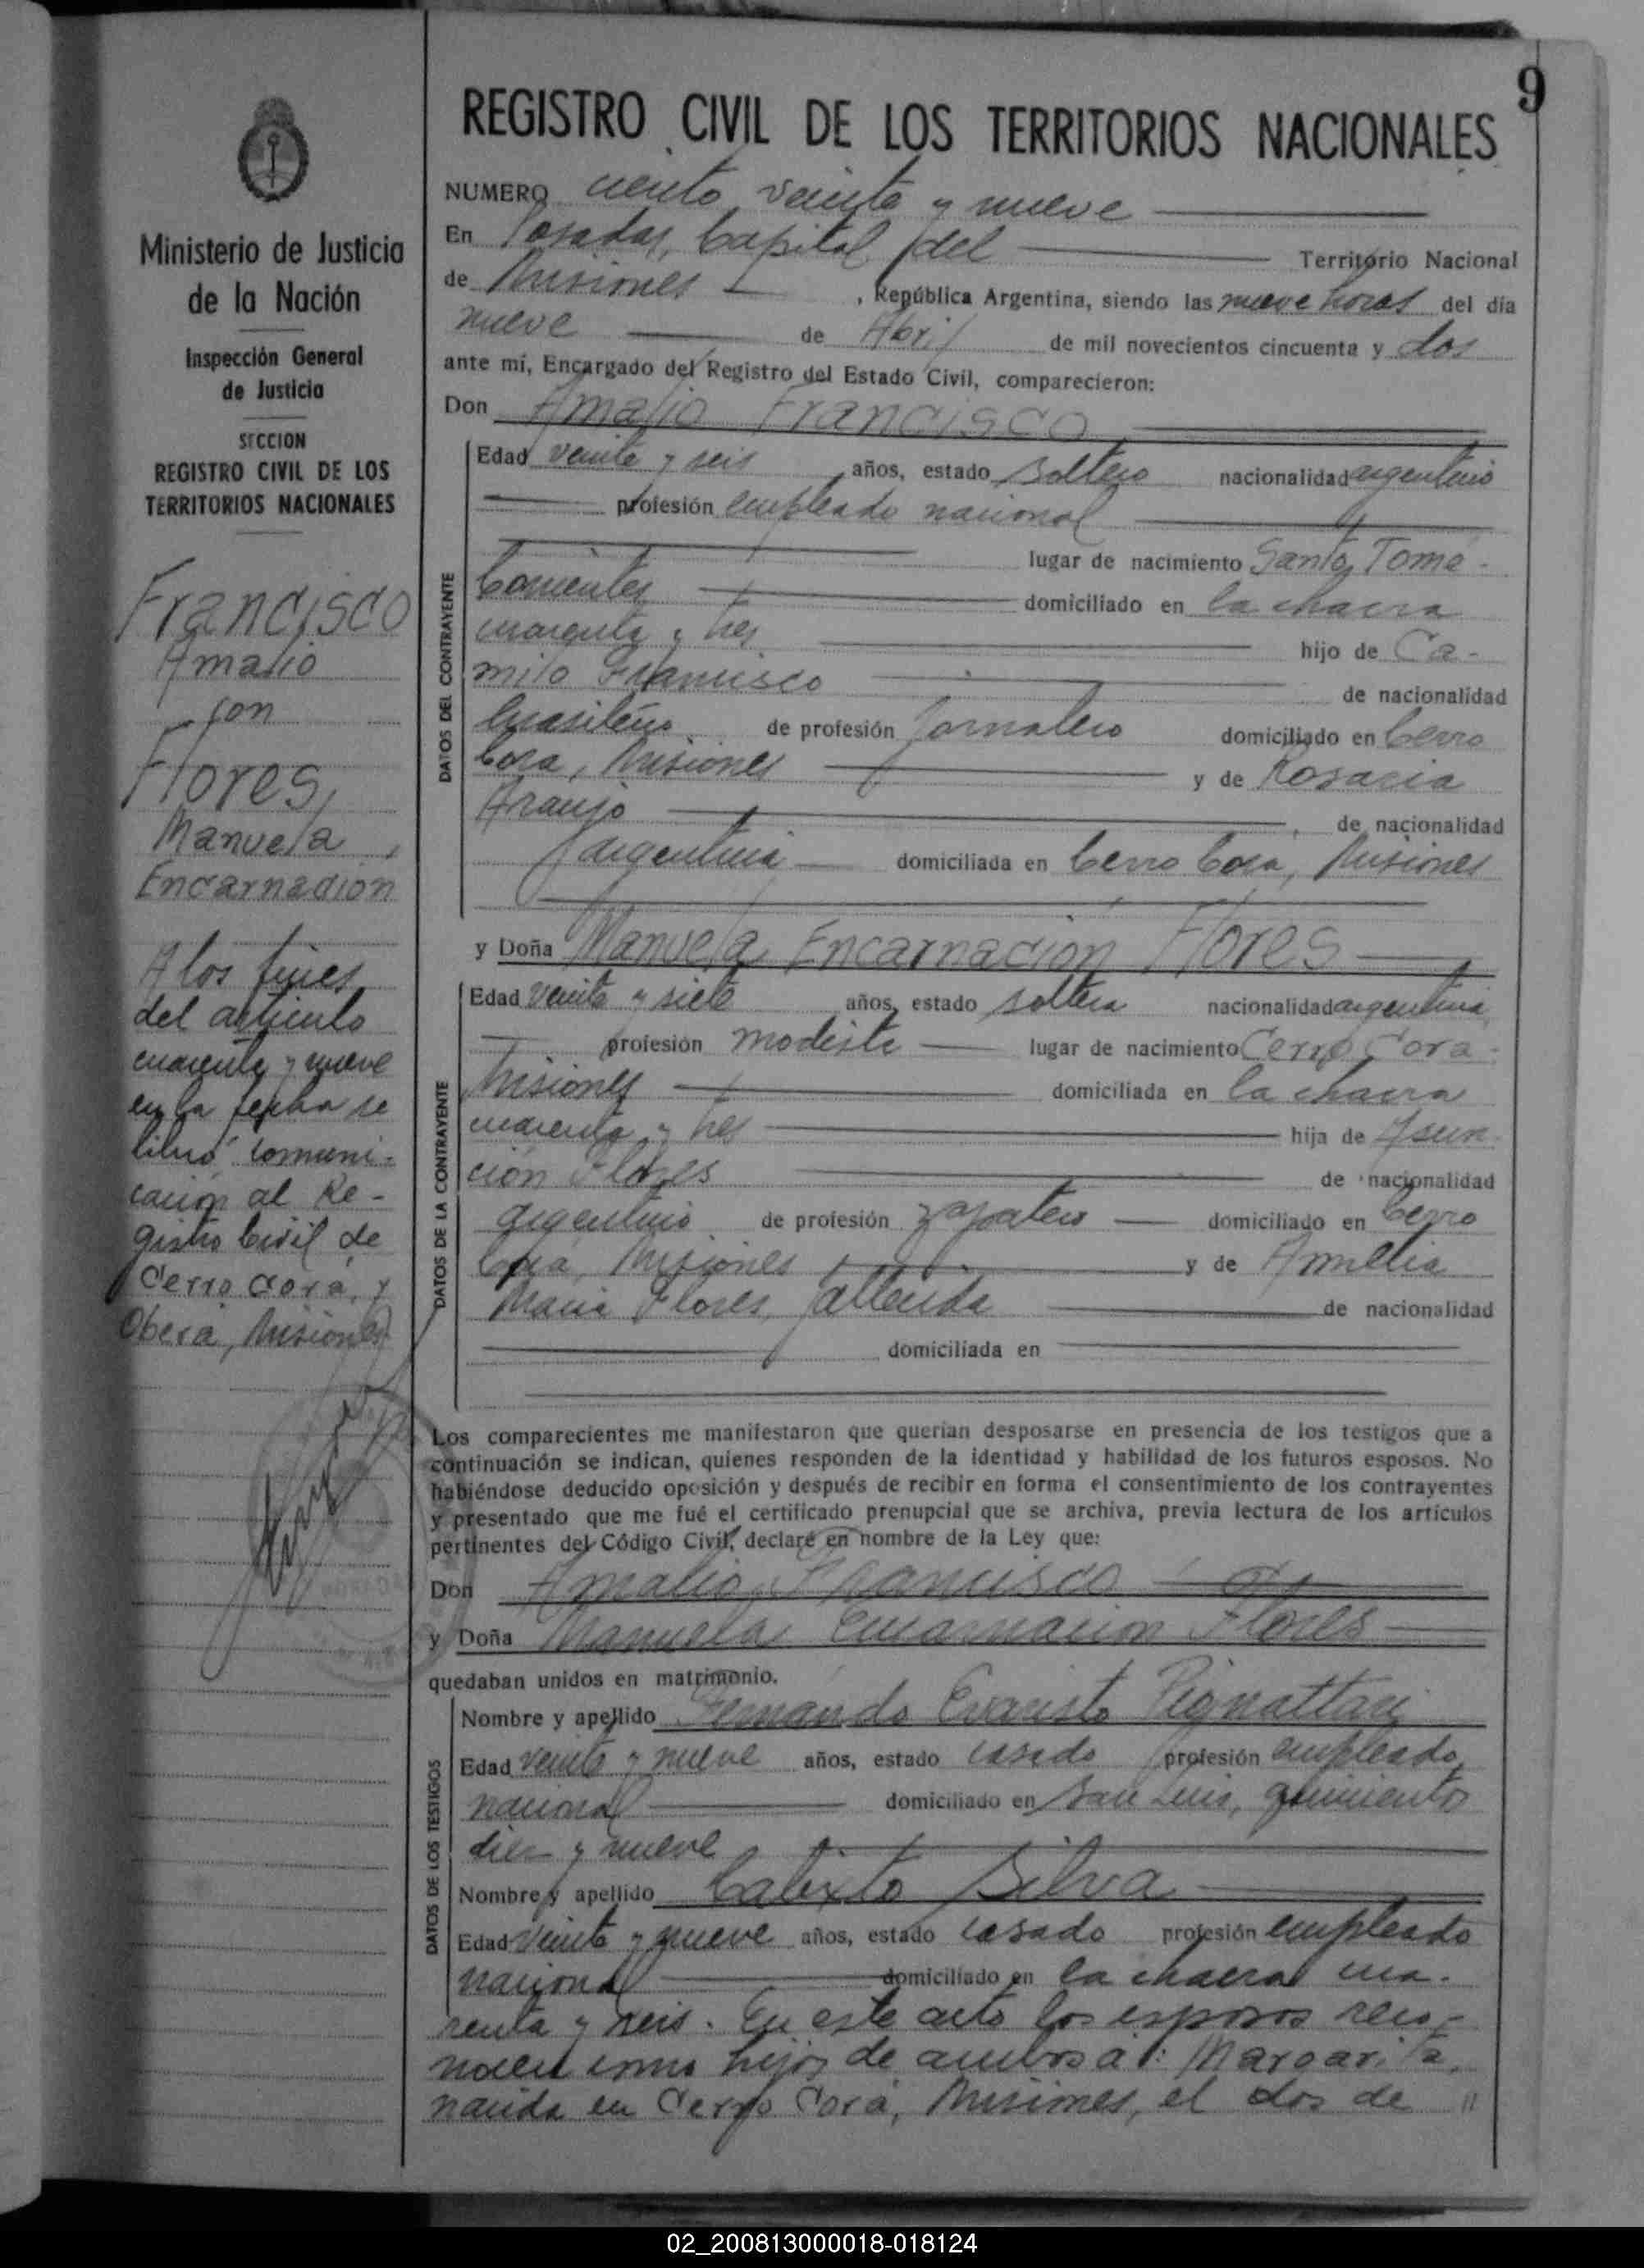 9
REGISTRO CIVIL DE LOS TERRITORIOS NACIONALES
Ministerio de Justicia
de la Nación
Inspección General
de Justicia
SECCION
REGISTRO CIVIL DE LOS
TERRITORIOS NACIONALES
Francisco
Amalio
con
Flores,
Manuela
Encarnacion
A los fines
del artículo
cuarenta y nueve
en la fecha se
libró comuni-
cación al Re-
gistro Civil de
Cerro Corá, y
Oberá, Misiones
NUMERO ciento veinte y nueve
En Posadas, Capital del Territorio Nacional
de Misiones, República Argentina, siendo las nueve horas del día
nueve de Abril de mil novecientos cincuenta y dos
ante mí, Encargado del Registro del Estado Civil, comparecieron:
Don Amalio Francisco
DATOS DEL CONTRAYENTE
Edad veinte y seis años, estado soltero nacionalidad argentino
profesión empleado nacional
lugar de nacimiento Santo Tomé-
Corrientes domiciliado en la chacra
cuarenta y tres hijo de Ca-
milo Francisco de nacionalidad
brasileño de profesión jornalero domiciliado en Cerro
Cora, Misiones y de Rosaria
Araujo, de nacionalidad
argentina domiciliada en Cerro Cora, Misiones
y Doña Manuela Encarnación Flores
DATOS DE LA CONTRAYENTE
Edad veinte y siete años, estado soltera nacionalidad argentina
profesión modista lugar de nacimiento Cerro Cora-
Misiones domiciliada en la chacra
cuarenta y tres hija de Asun-
ción Flores de nacionalidad
argentino de profesión zapatero domiciliado en Cerro
Cora, Misiones y de Amelia
Maria Flores, fallecida de nacionalidad
domiciliada en
Los comparecientes me manifestaron que querían desposarse en presencia de los testigos que a
continuación se indican, quienes responden de la identidad y habilidad de los futuros esposos. No
habiéndose deducido oposición y después de recibir en forma el consentimiento de los contrayentes
y presentado que me fué el certificado prenupcial que se archiva, previa lectura de los artículos
pertinentes del Código Civil, declaré en nombre de la Ley que:
Don Amalio Francisco
y Doña Manuela Encarnación Flores
quedaban unidos en matrimonio.
DATOS DE LOS TESTIGOS
Nombre y apellido Fernando Evaristo Pignattari
Edad veinte y nueve años, estado casado profesión empleado
nacional domiciliado en San Luis, quinientos
diez y nueve
Nombre y apellido Calixto Silva
Edad veinte y nueve años, estado casado profesión empleado
nacional domiciliado en la chacra cua-
renta y seis. En este acto los esposos reco-
nocen como hijos de ambos a: Margarita,
nacida en Cerro Corá, Misiones, el dos de "
02_200813000018-018124